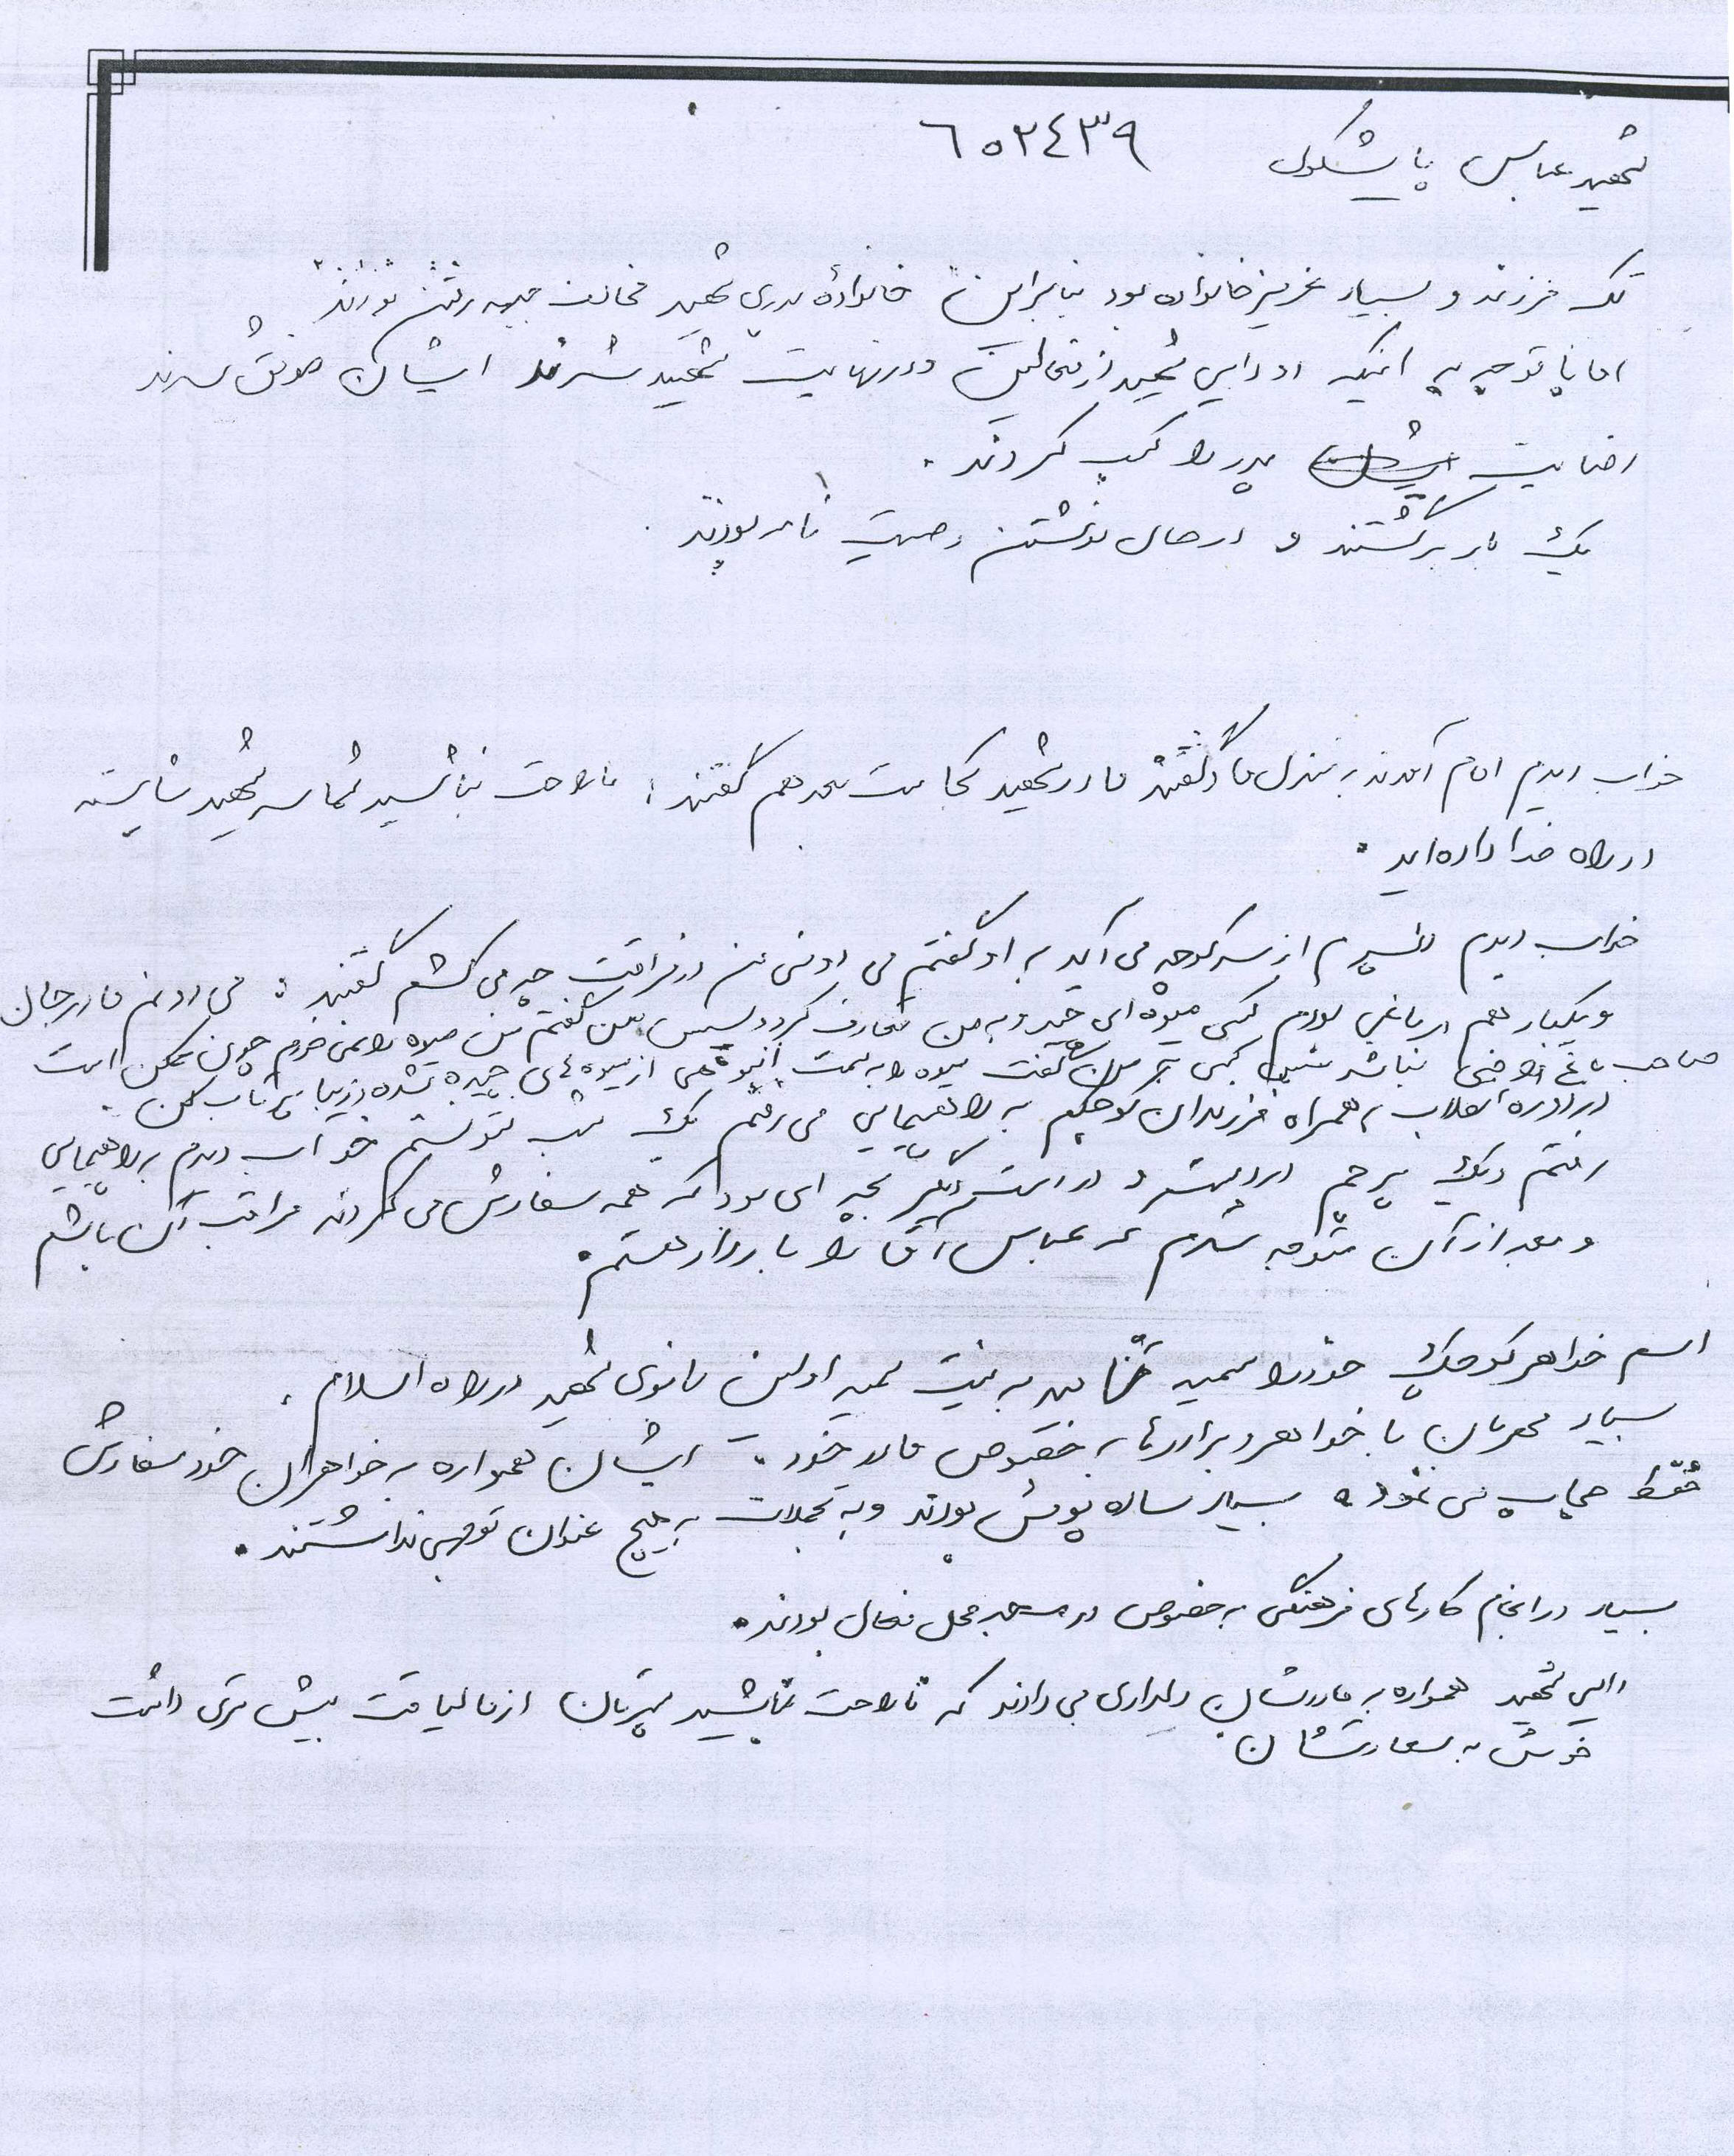 شهید عباس پاشکول ٦٥٢٤٣٩
تک فرزند و بسیار عزیز خانواده بود بنابراین خانواده پدری شهید مخالف جبهه رفتن بودند
اما با توجه به اینکه دایی شهید از و در نهایت شهید شدند ایشان موفق شدند
رضایت پدر را کسب کردند .
یک بار برگشتند و در حال نوشتن وصیت نامه بودند .
خواب دیدم امام آمدند به منزل ما و گفتند مادر شهید کجاست بعد هم گفتند : ناراحت نباشید شما شهید شایسته
در راه خدا داده‌اید .
خواب دیدم پسرم از سر کوچه می آید به او گفتم می دونی من در فراقت چه می کشم گفتند : می دونم مادر جان
و یکبار هم در باغی بودم کسی میوه ای چید و به من تعارف کرد و سپس من گفتم من میوه را نمی خورم چون ممکن است
صاحب باغ راضی نباشد کسی به من گفت میوه را به سمت انبوهی از میوه های چیده شده و زیبا پرتاب کن .
در دوره انقلاب به همراه فرزندان کوچکم به راهپیمایی می رفتم یک شب خواب دیدم به راهپیمایی
رفتم و یک پرچم در دست و در دست دیگر بچه ای بود که همه سفارش می کردند مراقب آن باشم
و بعد از آن متوجه شدم که عباس آقا را باردار هستم .
اسم خواهر کوچک خود را سمیه به نیت سمیه اولین بانوی شهید در راه اسلام .
بسیار مهربان با خواهر و برادرها به خصوص مادر خود . ایشان همواره به خواهران خود سفارش
حفظ حجاب می نمود . بسیار ساده پوش بودند و به تجملات به هیچ عنوان توجهی نداشتند .
بسیار در انجام کارهای فرهنگی به خصوص در مسجد محل فعال بودند .
دایی شهید همواره به مادرشان دلداری می دادند که ناراحت نباشید پسرتان از ما لیاقت بیش تری داشت
خوش به سعادتشان